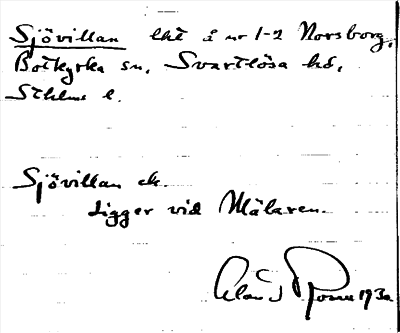 Sjövillan lht å nr 1-2 Norsborg,
Botkyrka sn, Svartlösa hd,
Sthlms l.
Sjövillan ek.
Ligger vid Mälaren.
1930